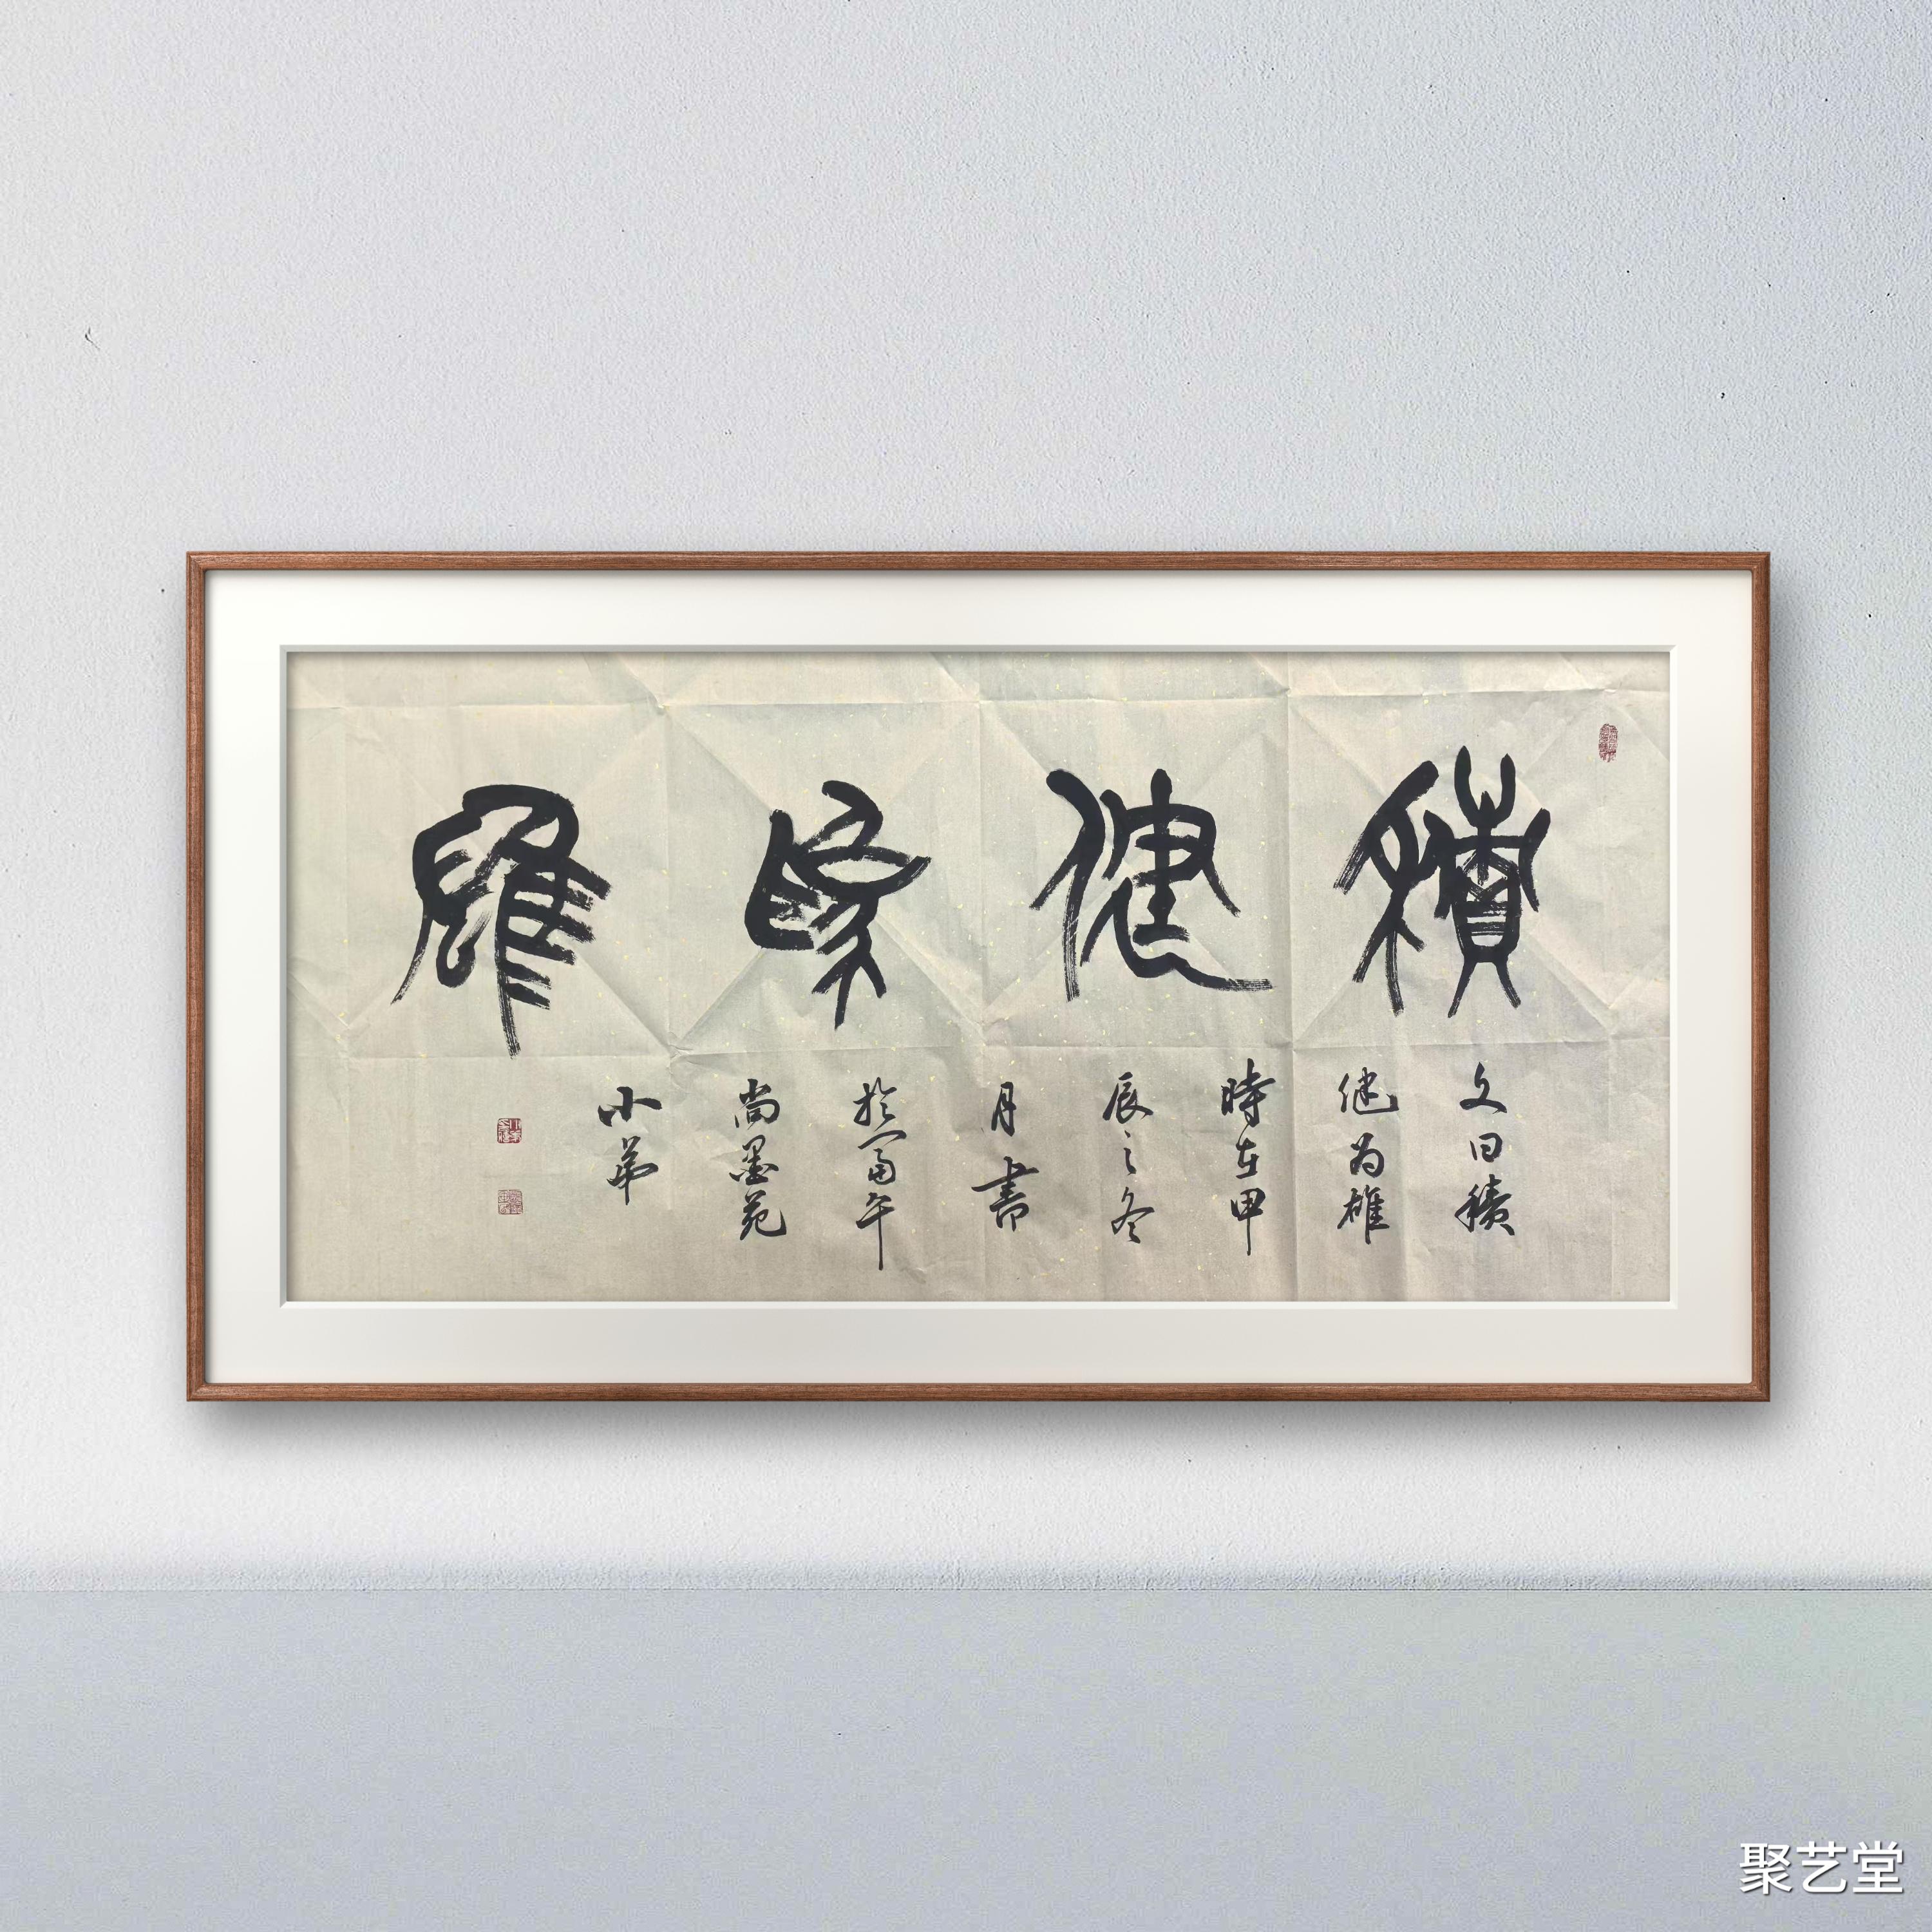 積健為雄
文曰積
健为雄
時在甲
辰之冬
月書
於富午
尚墨苑
小華
聚艺堂